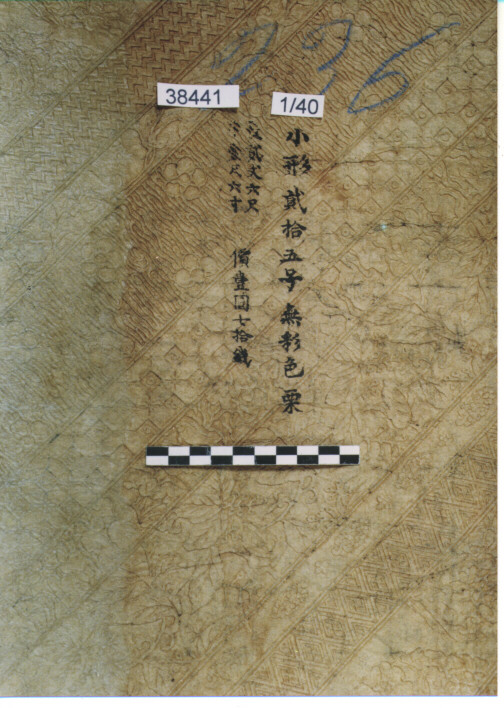 235
38441
1/40
小形貳拾五号無彩色栗
長貳丈六尺
巾叁尺六寸
價壹圓七拾錢